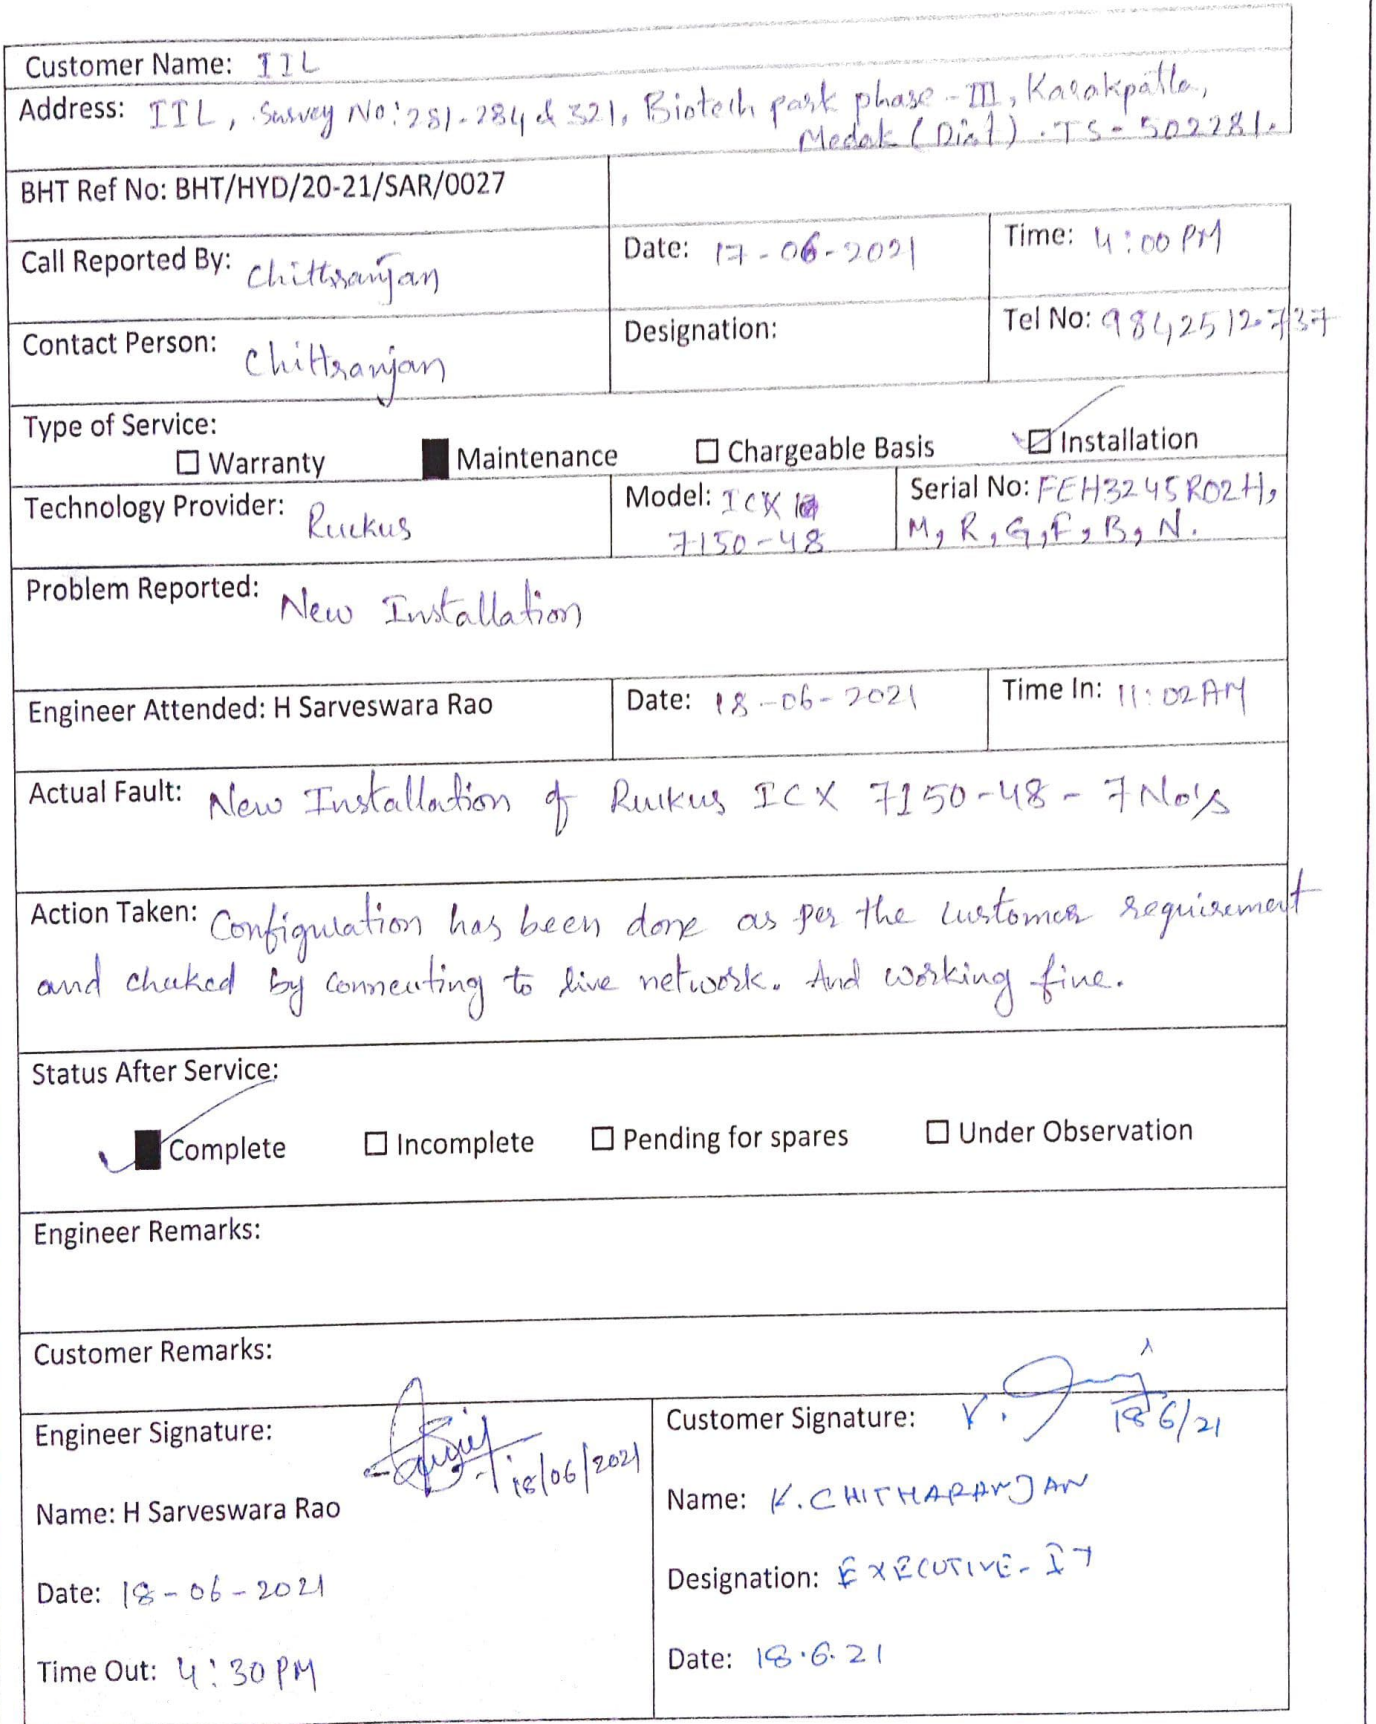 Customer Name: IIL
Address: IIL, Survey No: 281-284 & 321, Biotech park phase-III, Karakpatla,
Medak (Dist). TS-502281.
BHT Ref No: BHT/HYD/20-21/SAR/0027
Call Reported By: Chittranjan Date: 17-06-2021 Time: 4:00 PM
Contact Person: Chittranjan Designation: Tel No: 9842512737
Type of Service:
☐ Warranty ■ Maintenance ☐ Chargeable Basis ☑ Installation
Technology Provider: Ruckus Model: ICX Serial No: FEH3245R02H,
7150-48 M, R, G, F, B, N.
Problem Reported: New Installation
Engineer Attended: H Sarveswara Rao Date: 18-06-2021 Time In: 11:02 AM
Actual Fault: New Installation of Ruckus ICX 7150-48 - 7 No's
Action Taken: Configulation has been done as per the customer requirement
and checked by connecting to live network. And working fine.
Status After Service:
■ Complete ☐ Incomplete ☐ Pending for spares ☐ Under Observation
Engineer Remarks:
Customer Remarks:
Engineer Signature: 18/06/2021 Customer Signature: 18/6/21
Name: H Sarveswara Rao Name: K. CHITHARANJAN
Date: 18-06-2021 Designation: EXECUTIVE-IT
Time Out: 4:30 PM Date: 18.6.21